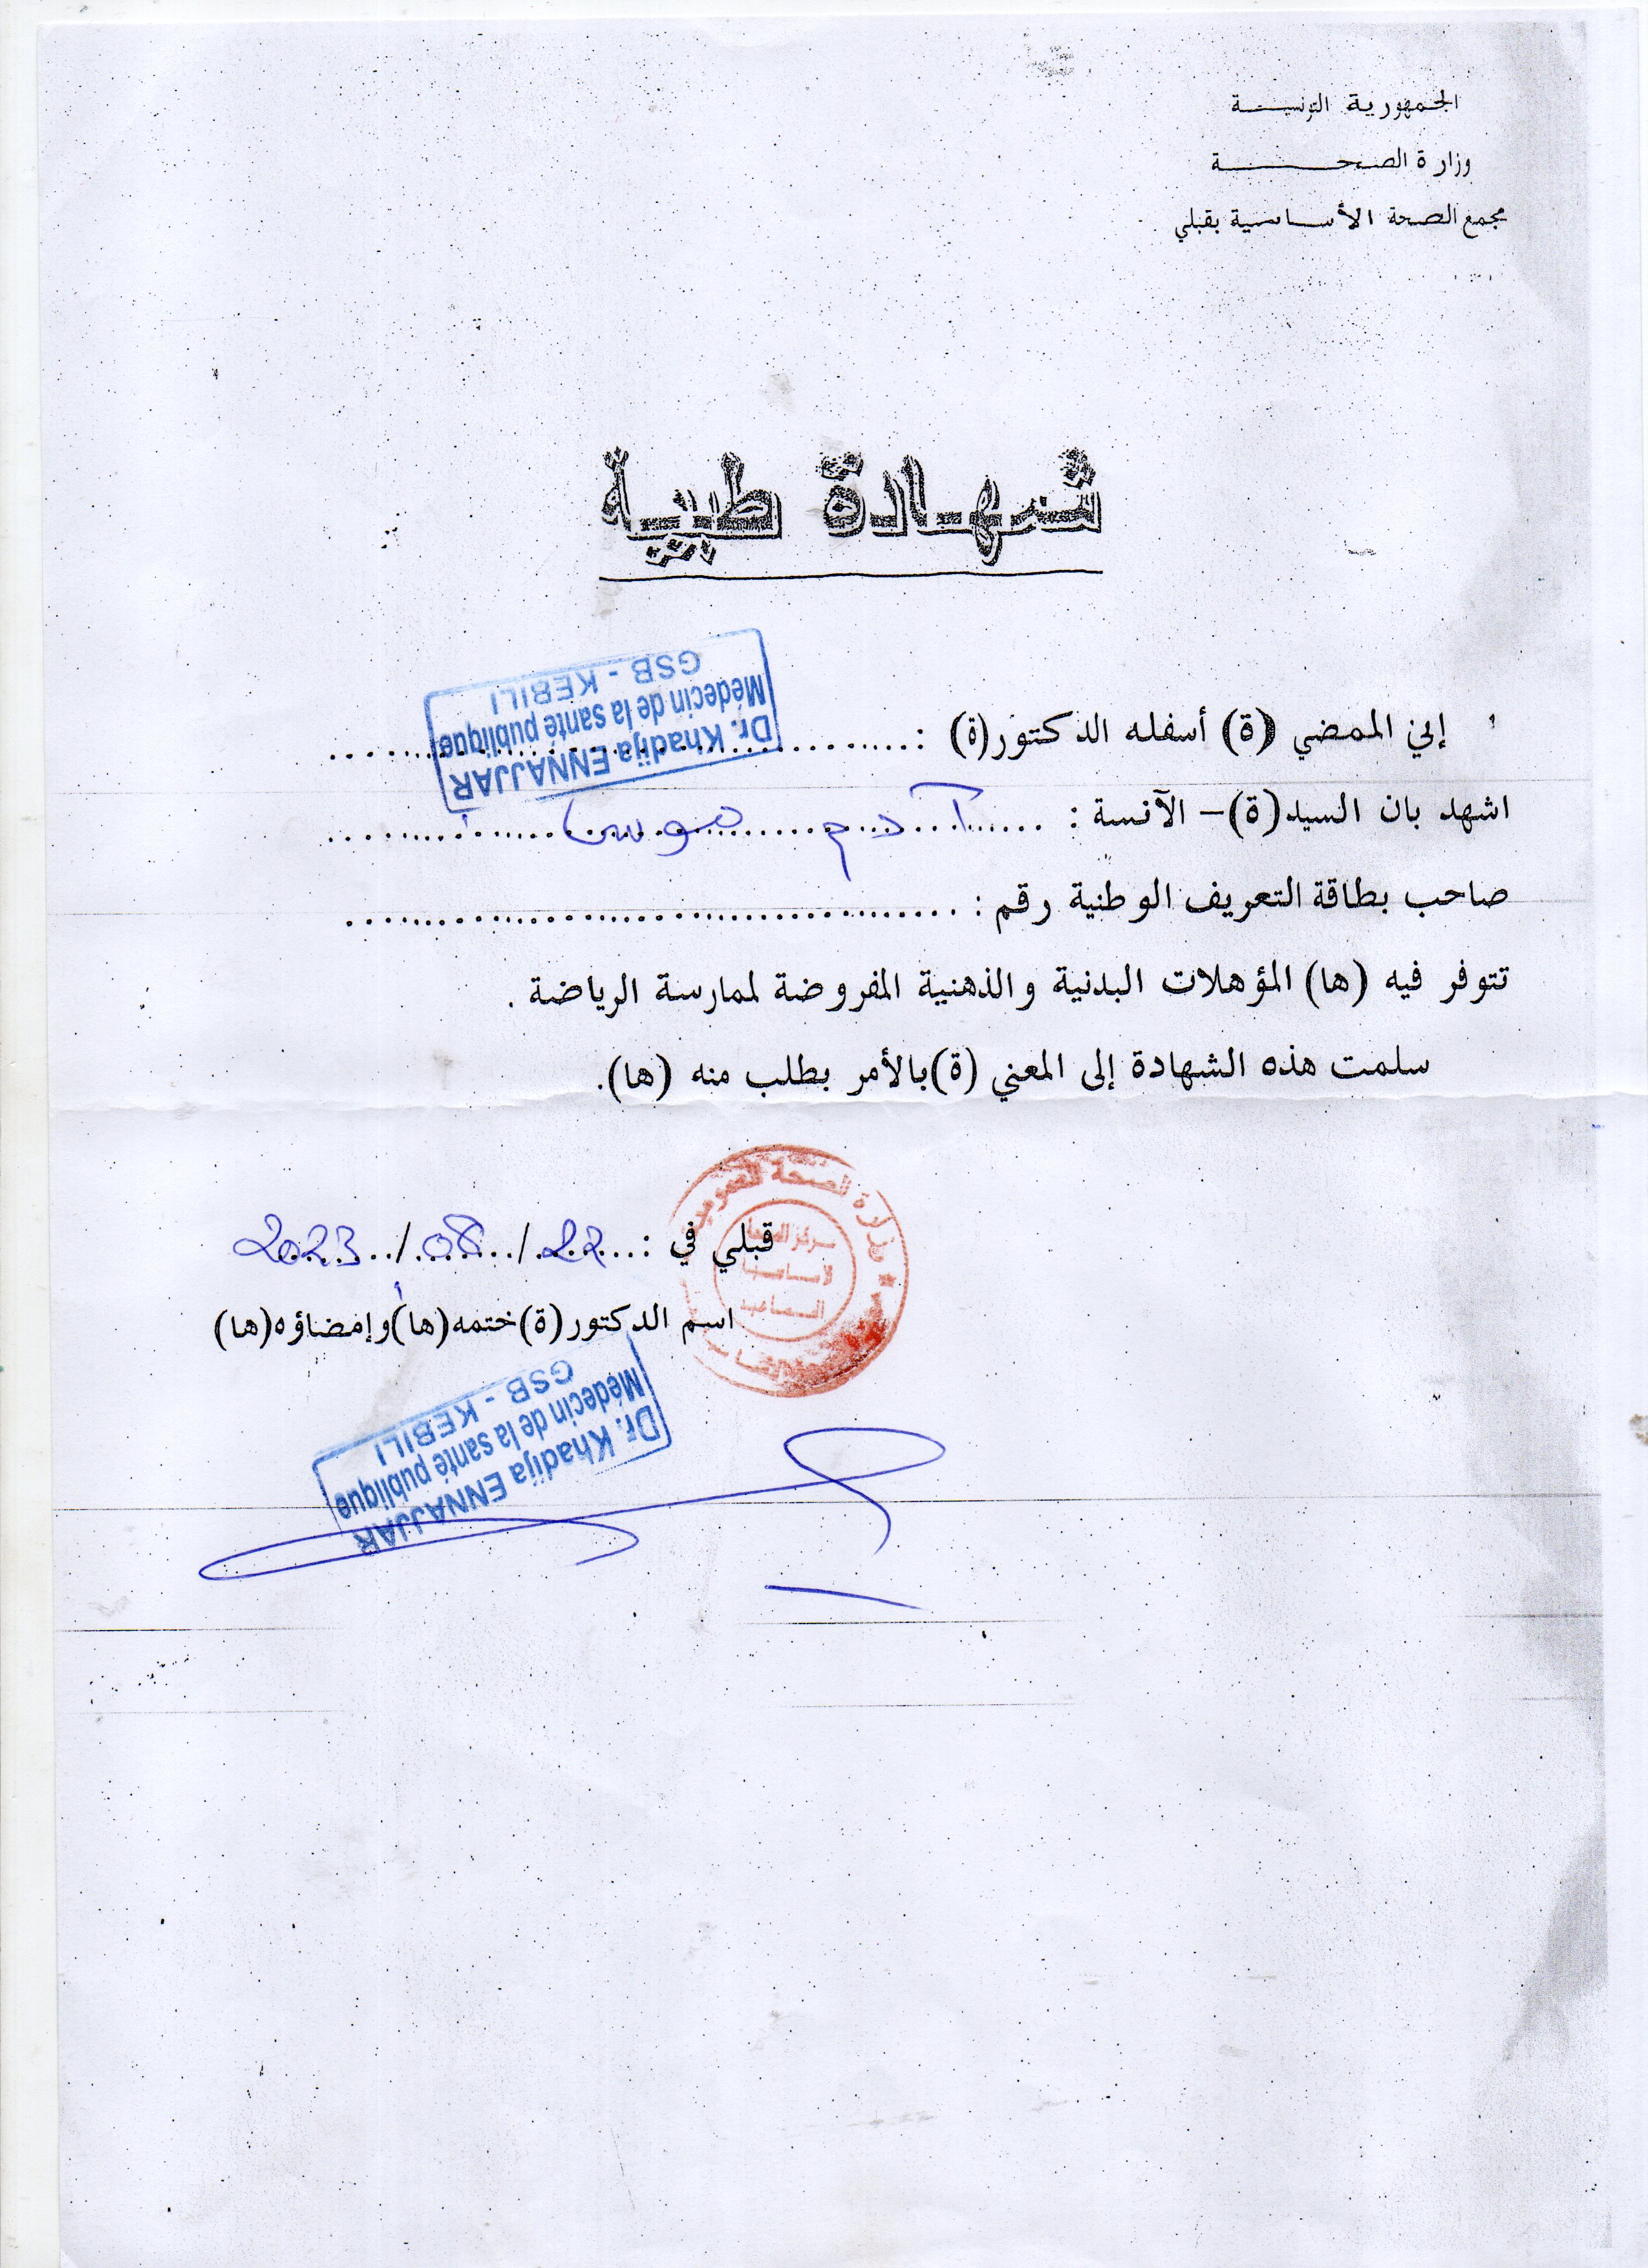 الجمهورية التونسية
وزارة الصحة
مجمع الصحة الأساسية بقبلي
شهادة طبية
إني الممضي (ة) أسفله الدكتور(ة) :
Dr. Khadija ENNAJJAR
Médecin de la santé publique
GSB - KEBILI
اشهد بان السيد(ة)– الآنسة : آدم موسى
صاحب بطاقة التعريف الوطنية رقم :
تتوفر فيه (ها) المؤهلات البدنية والذهنية المفروضة لممارسة الرياضة .
سلمت هذه الشهادة إلى المعني (ة)بالأمر بطلب منه (ها).
قبلي في : 22 / 08 / 2023
وزارة الصحة العمومية
مركز الصحة
الأساسية
اسم الدكتور(ة)ختمه(ها)وإمضاؤه(ها)
Dr. Khadija ENNAJJAR
Médecin de la santé publique
GSB - KEBILI